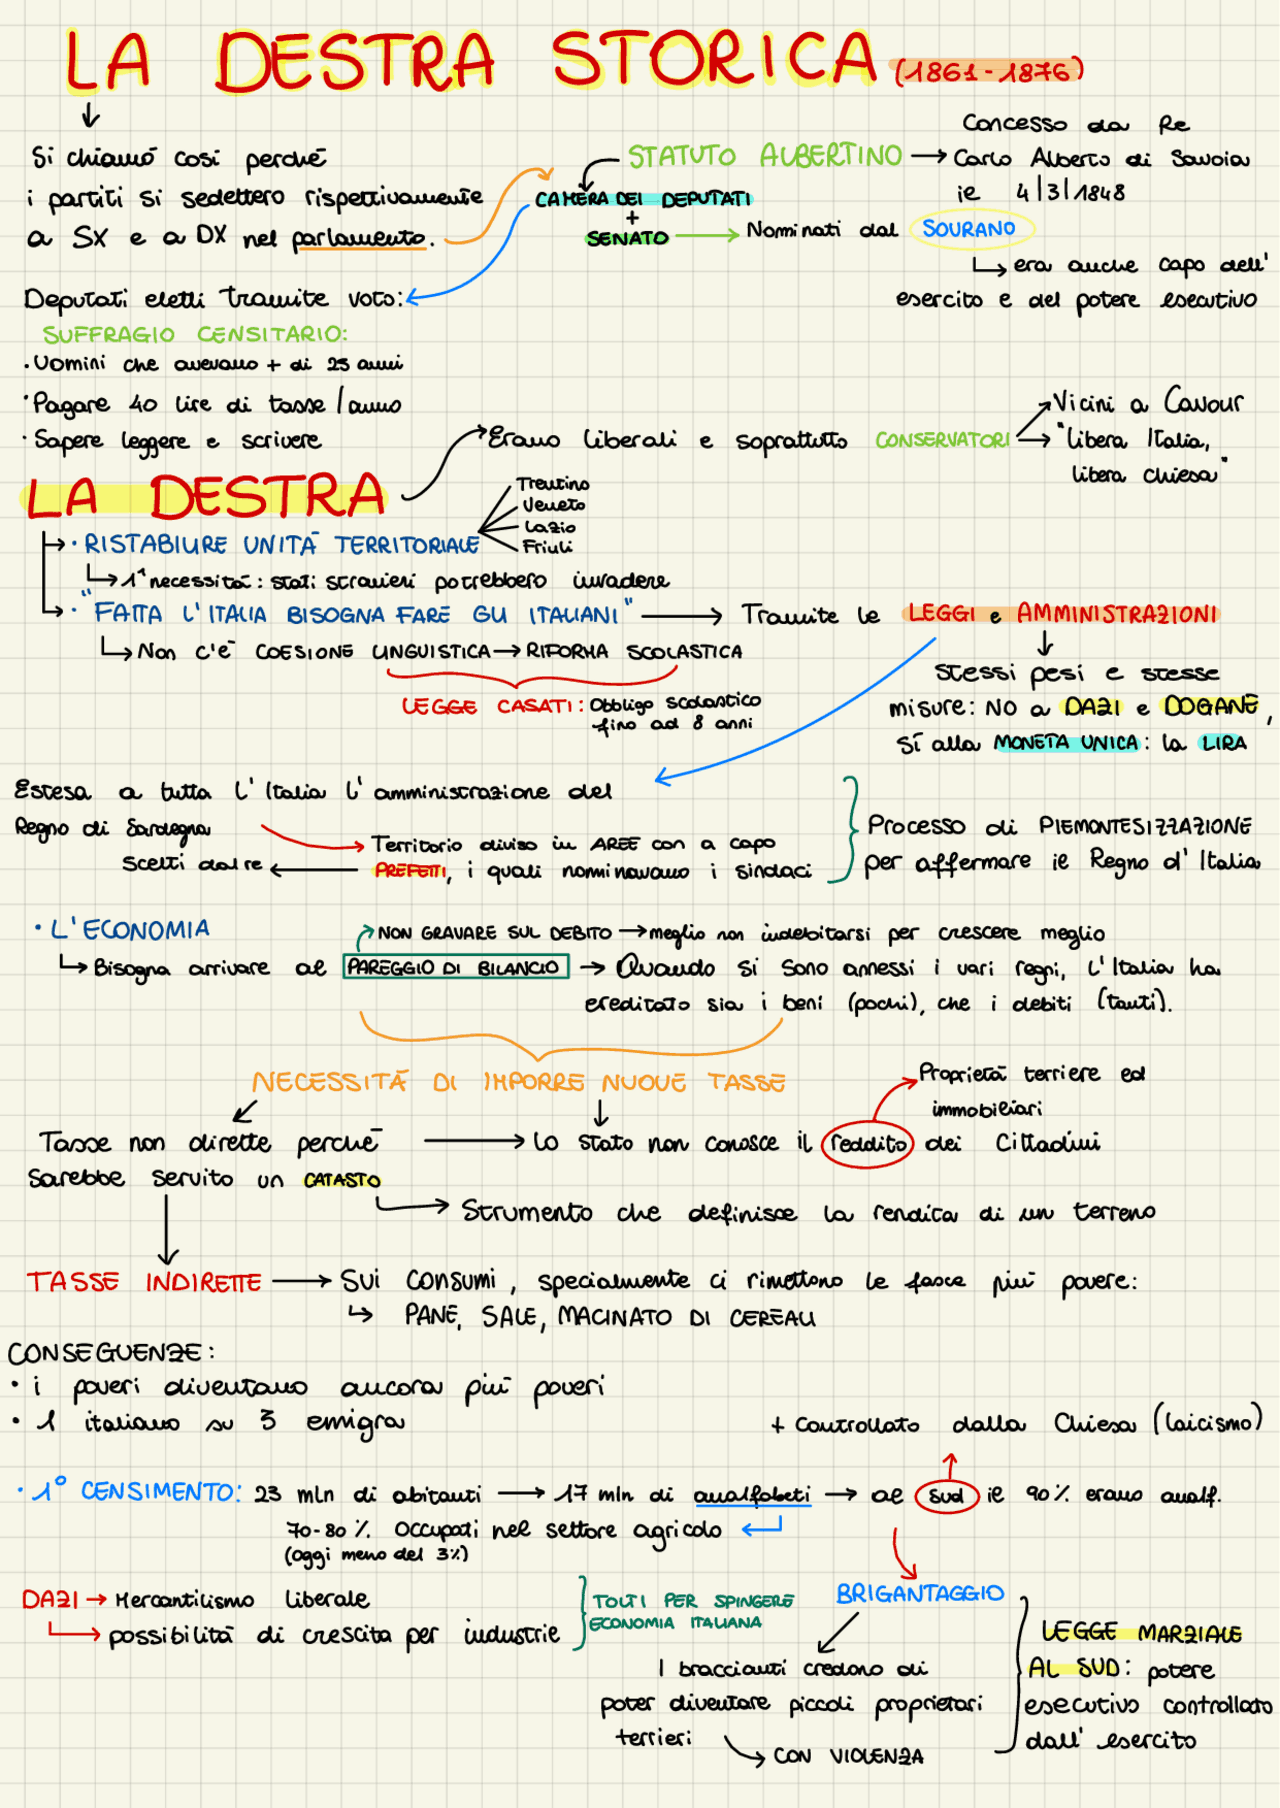 LA DESTRA STORICA (1861-1876)
Si chiamò così perché
i partiti si sedettero rispettivamente
a SX e a DX nel parlamento.
STATUTO ALBERTINO
Concesso da Re
Carlo Alberto di Savoia
il 4/3/1848
CAMERA DEI DEPUTATI
+
SENATO
Nominati dal SOVRANO
era anche capo dell'
esercito e del potere esecutivo
Deputati eletti tramite voto:
SUFFRAGIO CENSITARIO:
· Uomini che avevano + di 25 anni
· Pagare 40 lire di tasse/anno
· Sapere leggere e scrivere
Erano liberali e soprattutto CONSERVATORI
Vicini a Cavour
"libera Italia,
libera chiesa"
LA DESTRA
· RISTABILIRE UNITÀ TERRITORIALE
Trentino
Veneto
Lazio
Friuli
1ª necessità: stati stranieri potrebbero invadere
· "FATTA L'ITALIA BISOGNA FARE GLI ITALIANI"
Tramite le LEGGI e AMMINISTRAZIONI
Non c'è COESIONE LINGUISTICA → RIFORMA SCOLASTICA
LEGGE CASATI: Obbligo scolastico
fino ad 8 anni
stessi pesi e stesse
misure: NO a DAZI e DOGANE,
Sì alla MONETA UNICA: la LIRA
Estesa a tutta l'Italia l'amministrazione del
Regno di Sardegna
Territorio diviso in AREE con a capo
PREFETTI, i quali nominavano i sindaci
scelti dal re
Processo di PIEMONTESIZZAZIONE
per affermare il Regno d'Italia
· L'ECONOMIA
NON GRAVARE SUL DEBITO → meglio non indebitarsi per crescere meglio
Bisogna arrivare al PAREGGIO DI BILANCIO → Quando si sono annessi i vari regni, l'Italia ha
ereditato sia i beni (pochi), che i debiti (tanti).
NECESSITÀ DI IMPORRE NUOVE TASSE
Proprietà terriere ed
immobiliari
Tasse non dirette perché → lo stato non conosce il reddito dei Cittadini
Sarebbe servito un CATASTO
Strumento che definisce la rendita di un terreno
TASSE INDIRETTE → Sui consumi, specialmente ci rimettono le fasce più povere:
PANE, SALE, MACINATO DI CEREALI
CONSEGUENZE:
· i poveri diventano ancora più poveri
· 1 italiano su 3 emigra
+ controllato dalla Chiesa (laicismo)
· 1° CENSIMENTO: 23 mln di abitanti → 17 mln di analfabeti → al sud il 90% erano analf.
70-80% occupati nel settore agricolo
(oggi meno del 3%)
DAZI → Mercantilismo liberale
possibilità di crescita per industrie
TOLTI PER SPINGERE
ECONOMIA ITALIANA
BRIGANTAGGIO
I braccianti credono di
poter diventare piccoli proprietari
terrieri
CON VIOLENZA
LEGGE MARZIALE
AL SUD: potere
esecutivo controllato
dall'esercito